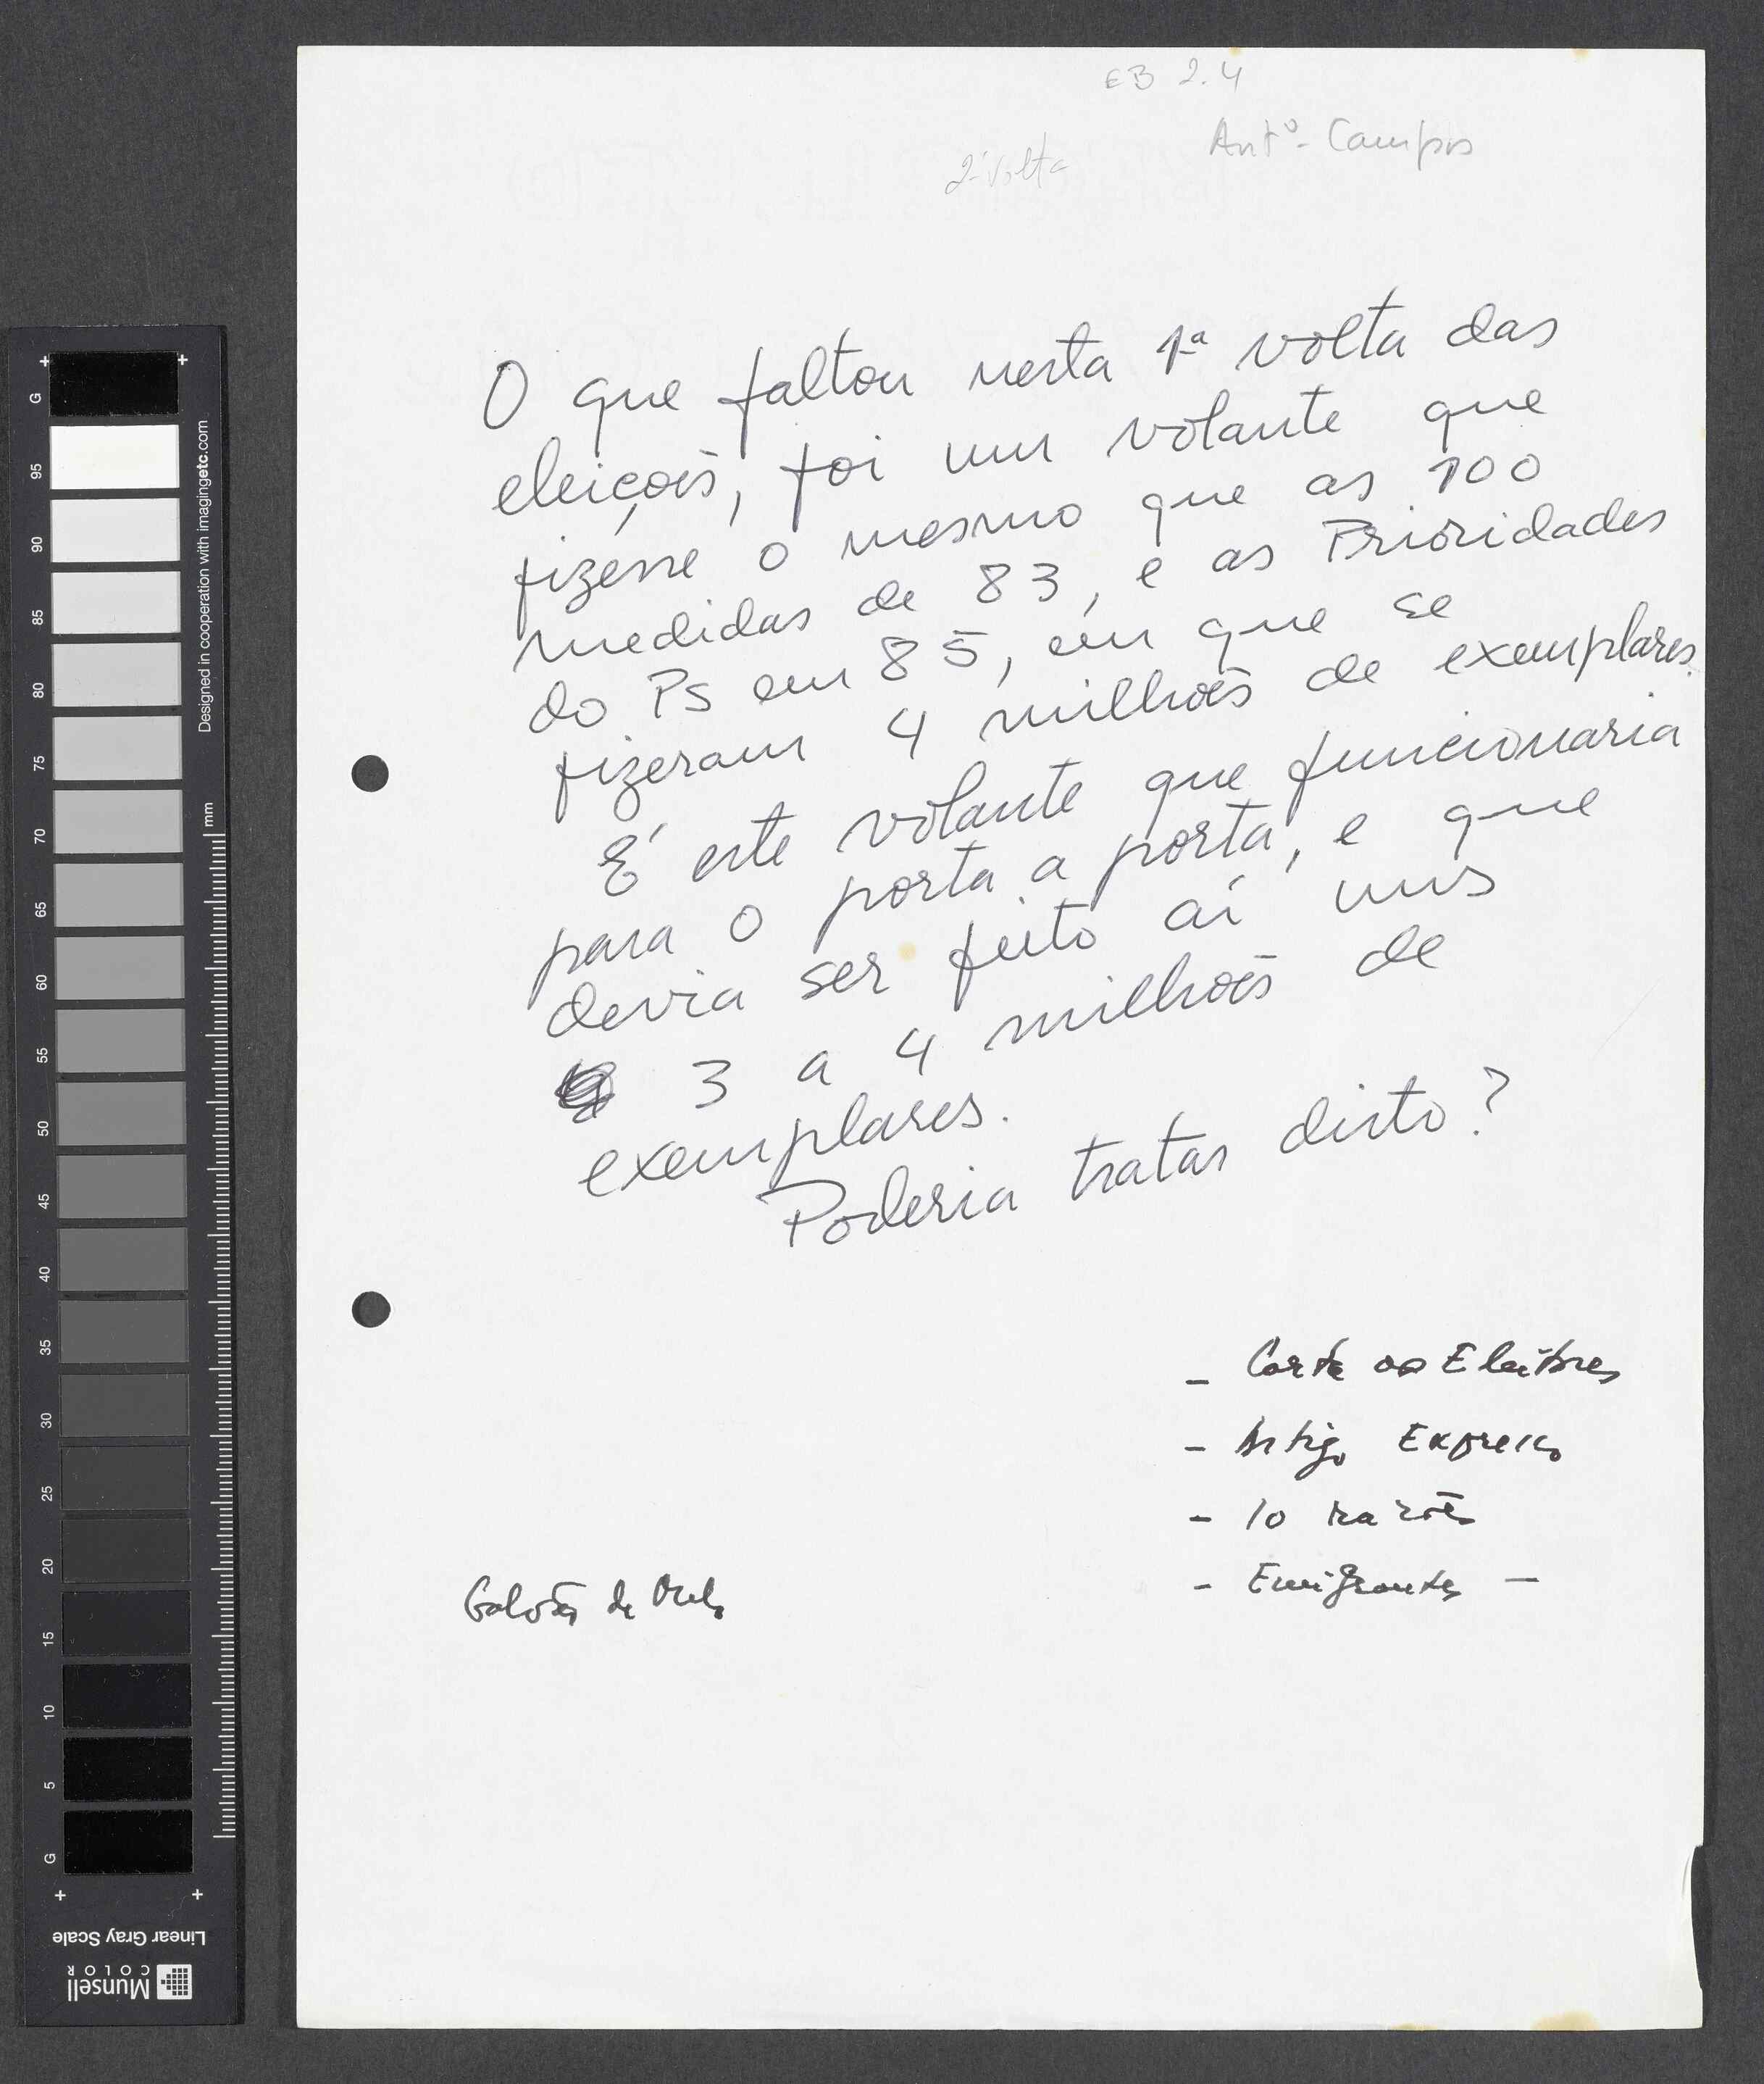 EB 2.4
Antº Campos
2ª volta
O que faltou nesta 1ª volta das
eleições, foi um volante que
fizésse o mesmo que as 100
medidas de 83, e as Prioridades
do PS em 85, em que se
fizeram 4 milhões de exemplares.
É este volante que funcionaria
para o porta a porta, e que
devia ser feito aí uns
3 a 4 milhões de
exemplares.
Poderia tratar disto?
- Carta aos Eleitores
- Artigo Expresso
- 10 razões
- Emigrantes -
Galvão de Melo
G
95
90
85
80
75
70
65
60
55
50
45
40
35
30
25
20
15
10
5
G
mm
Designed in cooperation with imagingetc.com
Linear Gray Scale
Munsell
COLOR